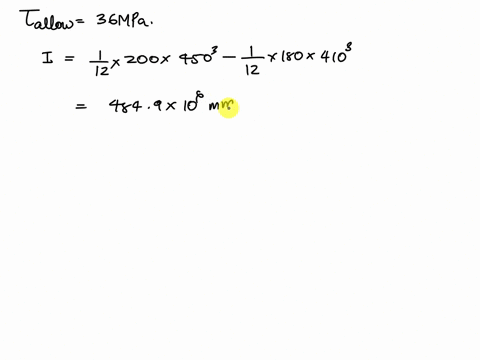 τallow = 36MPa.
I = 1/12 × 200 × 450³ − 1/12 × 180 × 410³
= 484.9 × 10⁶ mm